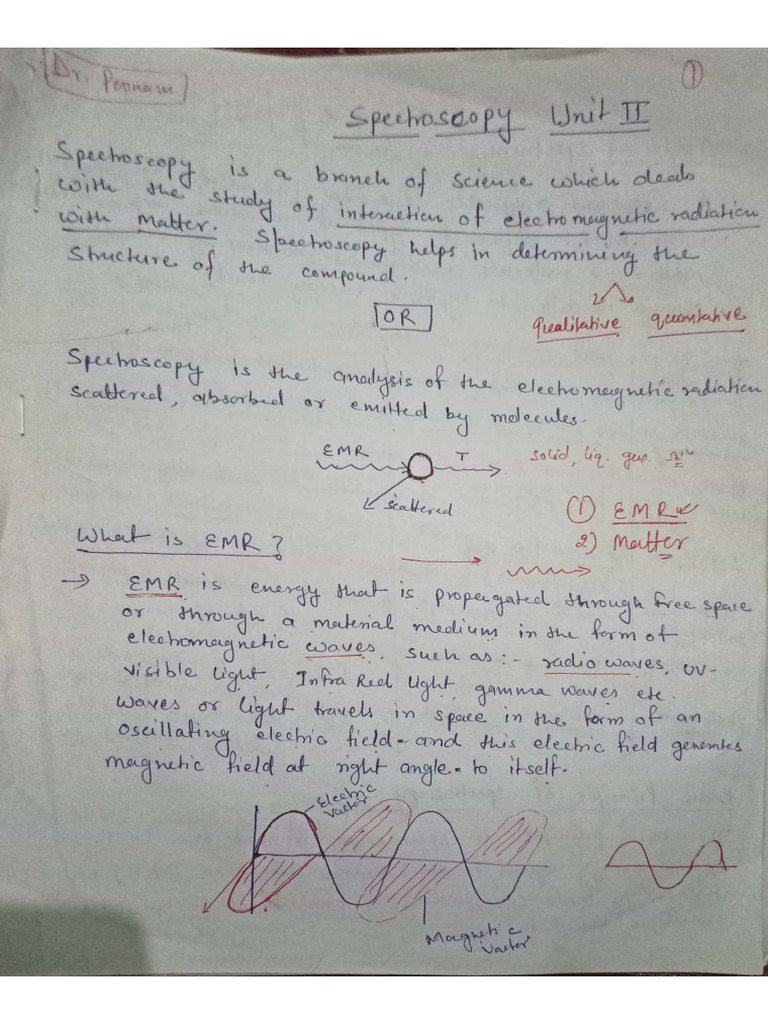 Dr. Poonam
①
Spectroscopy Unit II
Spectroscopy is a branch of science which deals
with the study of interaction of electromagnetic radiation
with matter. Spectroscopy helps in determining the
structure of the compound.
qualitative quantitative
OR
Spectroscopy is the analysis of the electromagnetic radiation
scattered, absorbed or emitted by molecules.
EMR T solid, liq. gas.
scattered
① EMR
2) Matter
What is EMR?
→ EMR is energy that is propagated through free space
or through a material medium in the form of
electromagnetic waves. such as :- radio waves, UV-
visible light, Infra Red light, gamma waves etc.
waves or light travels in space in the form of an
oscillating electric field - and this electric field generates
magnetic field at right angle - to itself.
Electric
vactor
Magnetic
vactor